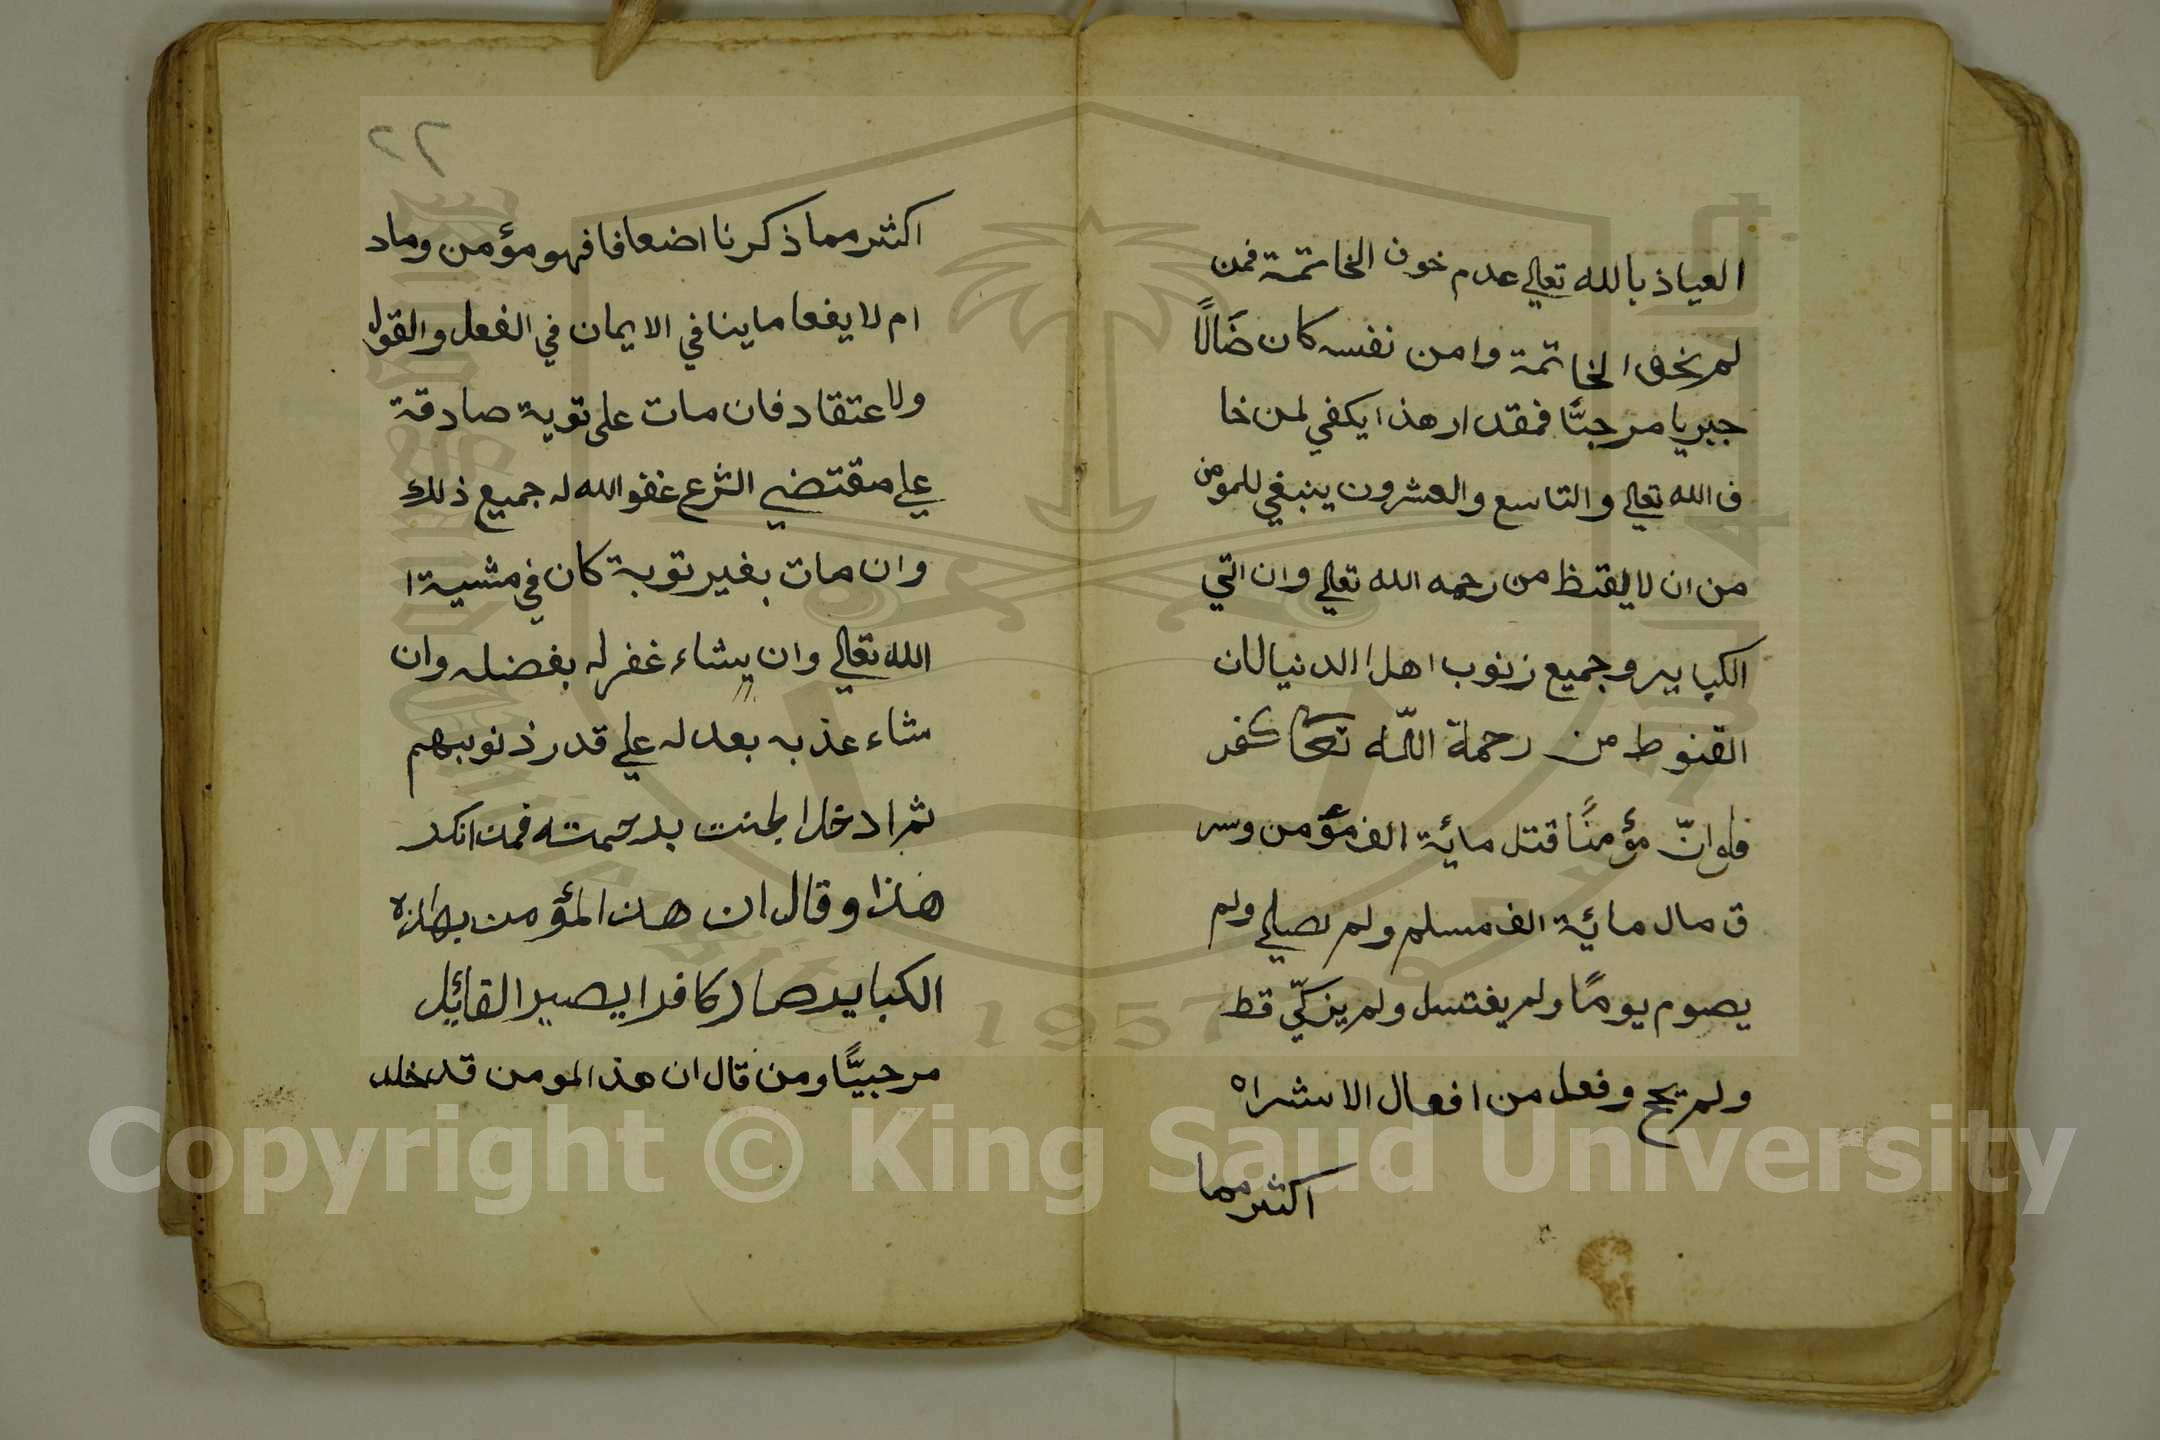 العياذ بالله تعالي عدم خوف الخاتمة فمن
لم يخف الخاتمة وامن نفسه كان ضَالًا
جبريا مرجبًّا فمقدار هذا يكفي لمن خا
ف الله تعالي والتاسع والعشرون ينبغي للمومن
من ان لا يقنظ من رحمه الله تعالي وان اتي
الكبايير وجميع زنوب اهل الدنيا لان
القنوط من رحمة اللّه تعا كفر
فلوانّ مؤمنًا قتل مائية الف مؤمن وسر
ق مال مائية الف مسلم ولم يصلي ولم
يصوم يومًا ولم يغتسل ولم يزكّي قط
ولم يحج وفعل من افعال الاشراه
اكثر مما
٢٢
اكثر مما ذكرنا اضعافا فهو مؤمن وماد
ام لا يفعا ما ينافي الايمان في الفعل والقول
ولاعتقاد فان مات على توبة صادقة
علي مقتضي الشرع غفو الله له جميع ذلك
وان مات بغير توبة كان في مشية ا
الله تعالي وان يشاء غفر له بفضله وان
شاء عذبه بعدله علي قدر ذنوبهم
ثم ادخل الجنت برحمته فمن انكر
هذا وقال ان هذا المؤمن بهاذه
الكباير صار كافرا يصير القائيل
مرجبيًّا ومن قال ان هذ المومن قد خلد
Copyright © King Saud University
1957